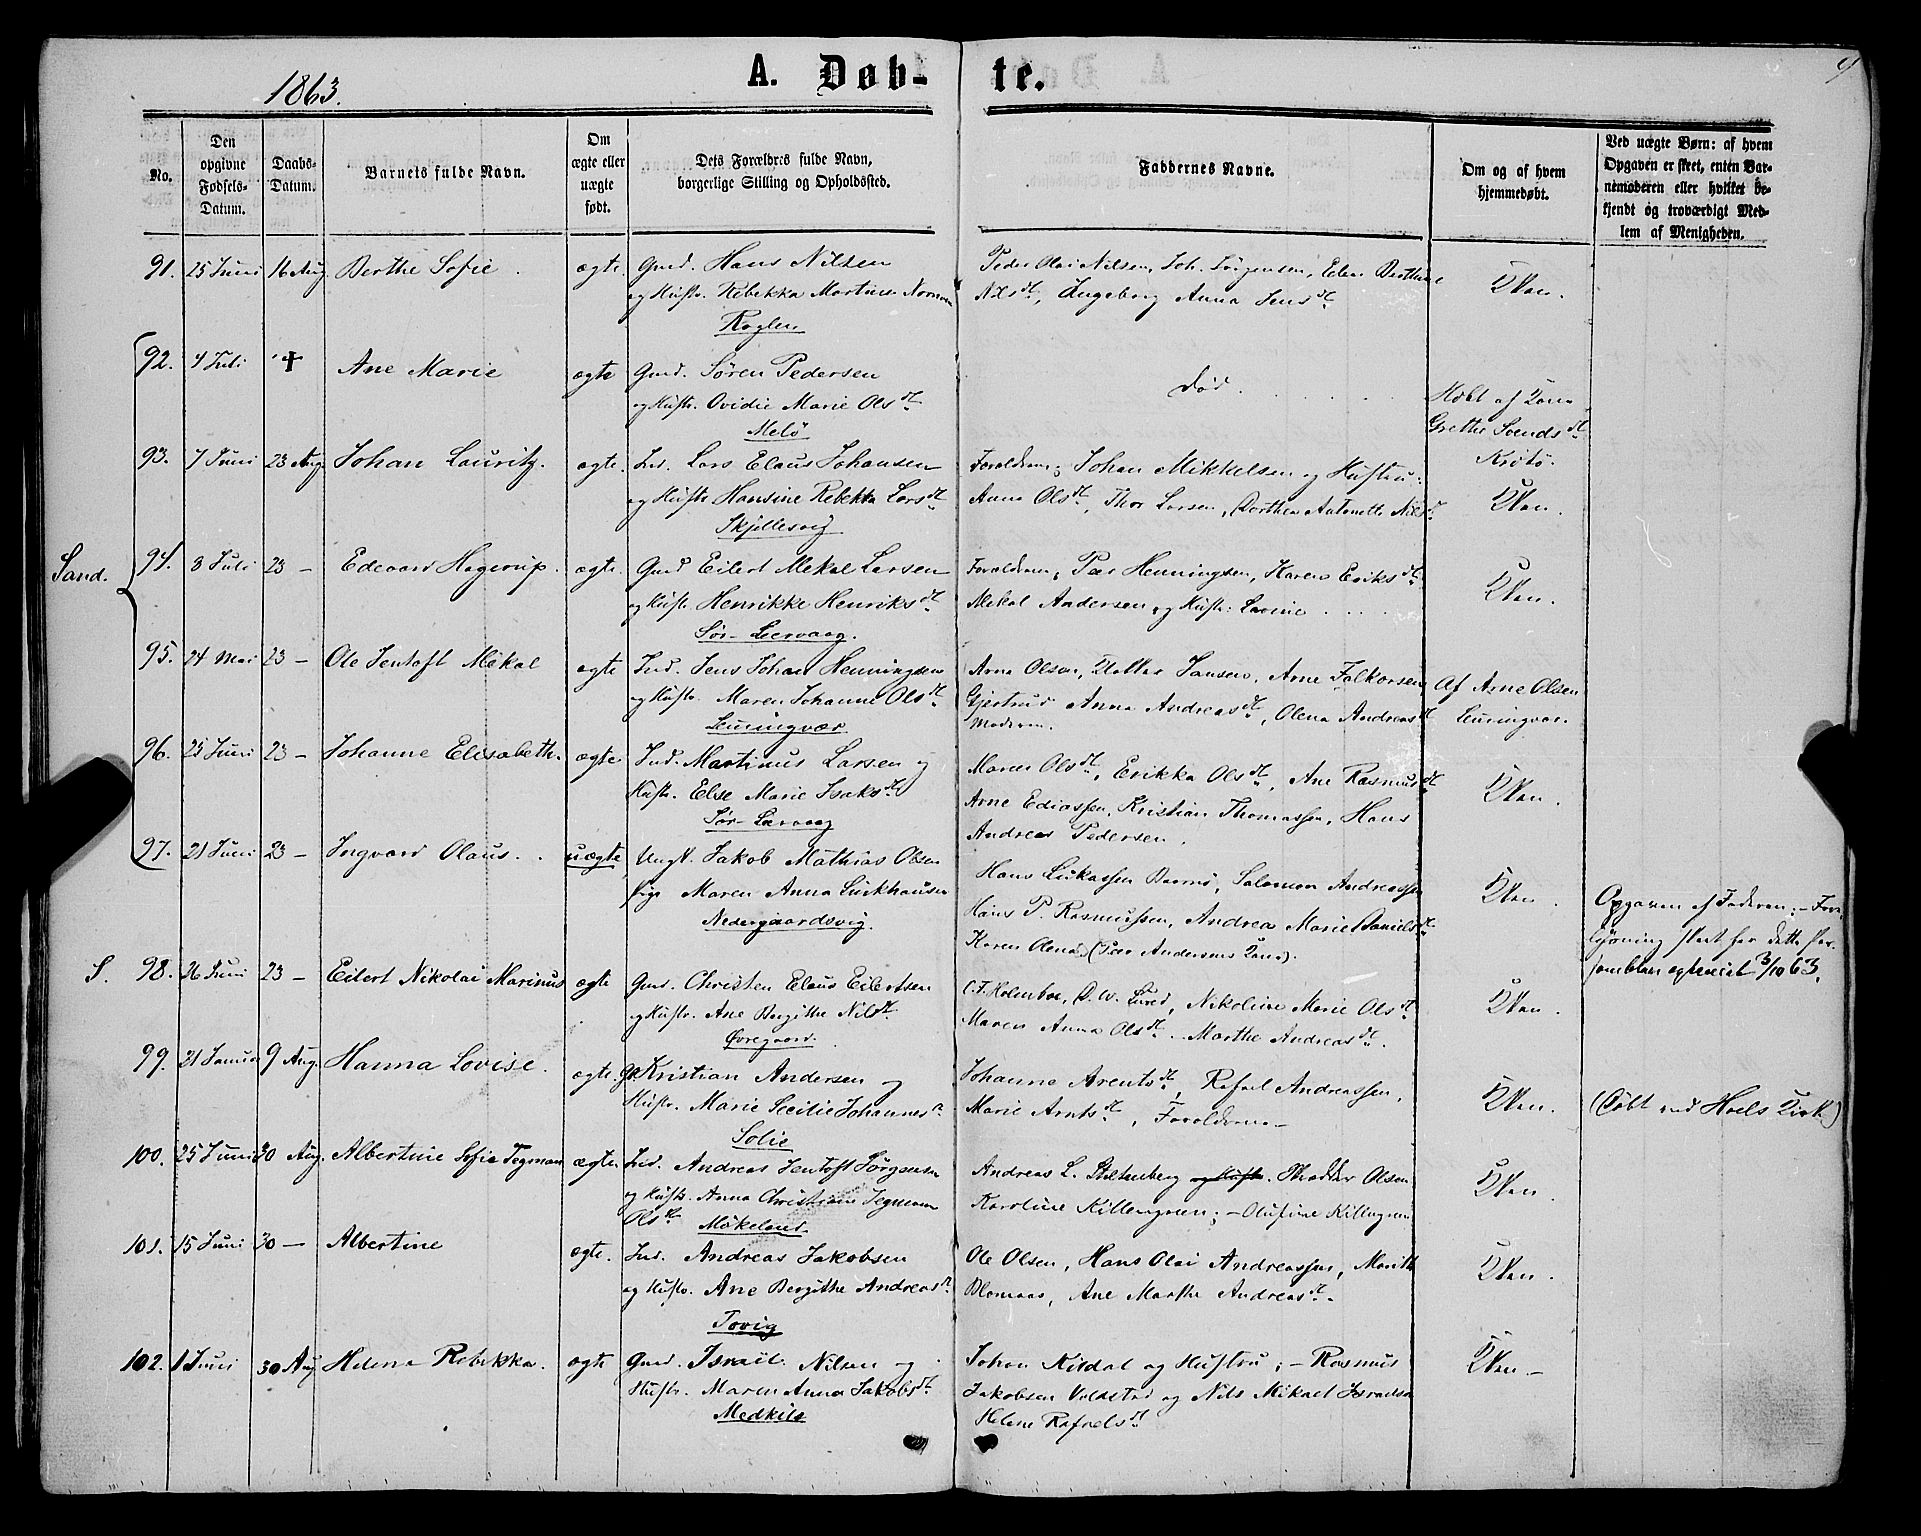 1863.
A. Døb-te.
9
No.
Den opgivne Fødsels-Datum.
Daabs-Datum.
Barnets fulde Navn.
Om ægte eller uægte født.
Dets Forældres fulde Navn, borgerlige Stilling og Opholdssted.
Faddernes Navne.
Om og af hvem hjemmedøbt.
Ved uægte Børn: af hvem Opgaven er skeet, enten Barnemoderen eller hvilket bekjendt og troværdigt Medlem af Menigheden.
91. 25 Juni 16 Aug Berthe Sofie. ægte. Gmd. Hans Nilsen
og Hustr. Rebekka Martine
Røglen
Peder Olai Nilsen, Joh. Jørgensen,
Nilsdt, Ingeborg Anna Jensdt.
92. 4 Juli † Ane Marie ægte Gmd. Søren Pedersen
og Hustr. Ovidie Marie Olsdt
Melö
død.
Hdbt af
Grethe Svendsdt
Krøtö.
93. 7 Juni 23 Aug. Johan Lauritz. ægte. Ind. Lars Elaus Johansen
og Hustr Hansine Rebekka Larsdt
Skjellesvig
Forældrene; Johan Mikkelsen og Hustru:
Anna Olsdt, Thor Larsen, Dorthea Antonette Nilsdt
Sand.
94. 3 Juli 23 – Edevard Hagerup. ægte. Gmd Eilert Mekal Larsen
og Hustr Henrikke Henriksdt
Sør-Leervaag.
Forældrene; Peer Henningsen, Karen Eriksdt
Mekal Andersen og Hustr: Lavine
95. 24 Mai 23 – Ole Jentoft Mekal ægte Ind. Jens Johan Henningsen
og Hustr. Maren Johanne Olsdt
Leuningvær
Arne Olsen, Jansen, Arne Falkorsen
Gjertrud Anna Andreasdt, Olena Andreasdt
Moderen.
Af Arne Olsen
Leuningvær.
96. 25 Juni 23 – Johanne Elisabeth. ægte Ind. Martinus Larsen og
Hustr. Else Marie Isaksdt
Sør-Leervaag
Maren Olsdt, Erikka Olsdt, Ane Rasmusdt
Arne Ediassen, Kristian Thomassen, Hans
Andreas Pedersen.
97. 21 Juni 23 – Ingvard Olaus. uægte Ungk. Jakob Mathias Olsen
Pige Maren Anna Lückhausen
Nedergaardsvig.
Hans Lukassen, Salamon Andreassen
Hans P. Rasmussen, Andrea Marie Danielsdt
Karen Olena (Peer Andersens Kone).
Opgaven af Faderen; –
3/10 63.
S. 98. 26 Juni 23 – Eilert Nikolai Marinus ægte Gmd. Christen Elaus Eilertsen
og Hustr. Ane Bergithe Nilsdt.
Øvregaard.
C. F. Holmboe, D. W. Lund, Nikoline Marie Olsdt
Maren Anna Olsdt. Marthe Andreasdt.
99. 21 Januar 9 Aug. Hanna Lovise. ægte. Kristian Andersen og
Hustr. Marie Secilie Johannesdt
Solie
Johanne Arentsdt, Rafael Andreassen,
Marie Arntsdt, Forældrene –
(Døbt ved Hoels Kirk.)
100. 25 Juni 30 Aug. Albertine Sofie Tegman ægte. Ind. Andreas Jentoft Jørgensen
og Hustr. Anna Christiane Tegman
Olsdt Møkeland
Andreas L. Steltenberg og Hustr. Olsen
Karoline Killengreen; – Olufine Killengreen
101. 15 Juni 30 – Albertine ægte. Ind. Andreas Jakobsen
og Hustr. Ane Bergithe Andreasdt.
Tovig
Ole Olsen, Hans Olai Andreassen, Marith
Blomaas, Ane Marthe Andreasdt.
102. 1 Juni 30 Aug Helena Rebekka. ægte Gmd. Israel Nilsen og
Hustr. Maren Anna Jakobsdt.
Medkila
Johan Kildal og Hustru; – Rasmus
Jakobsen Voldstad og Nils Mikael Israelsen
Helene Rafaelsdt